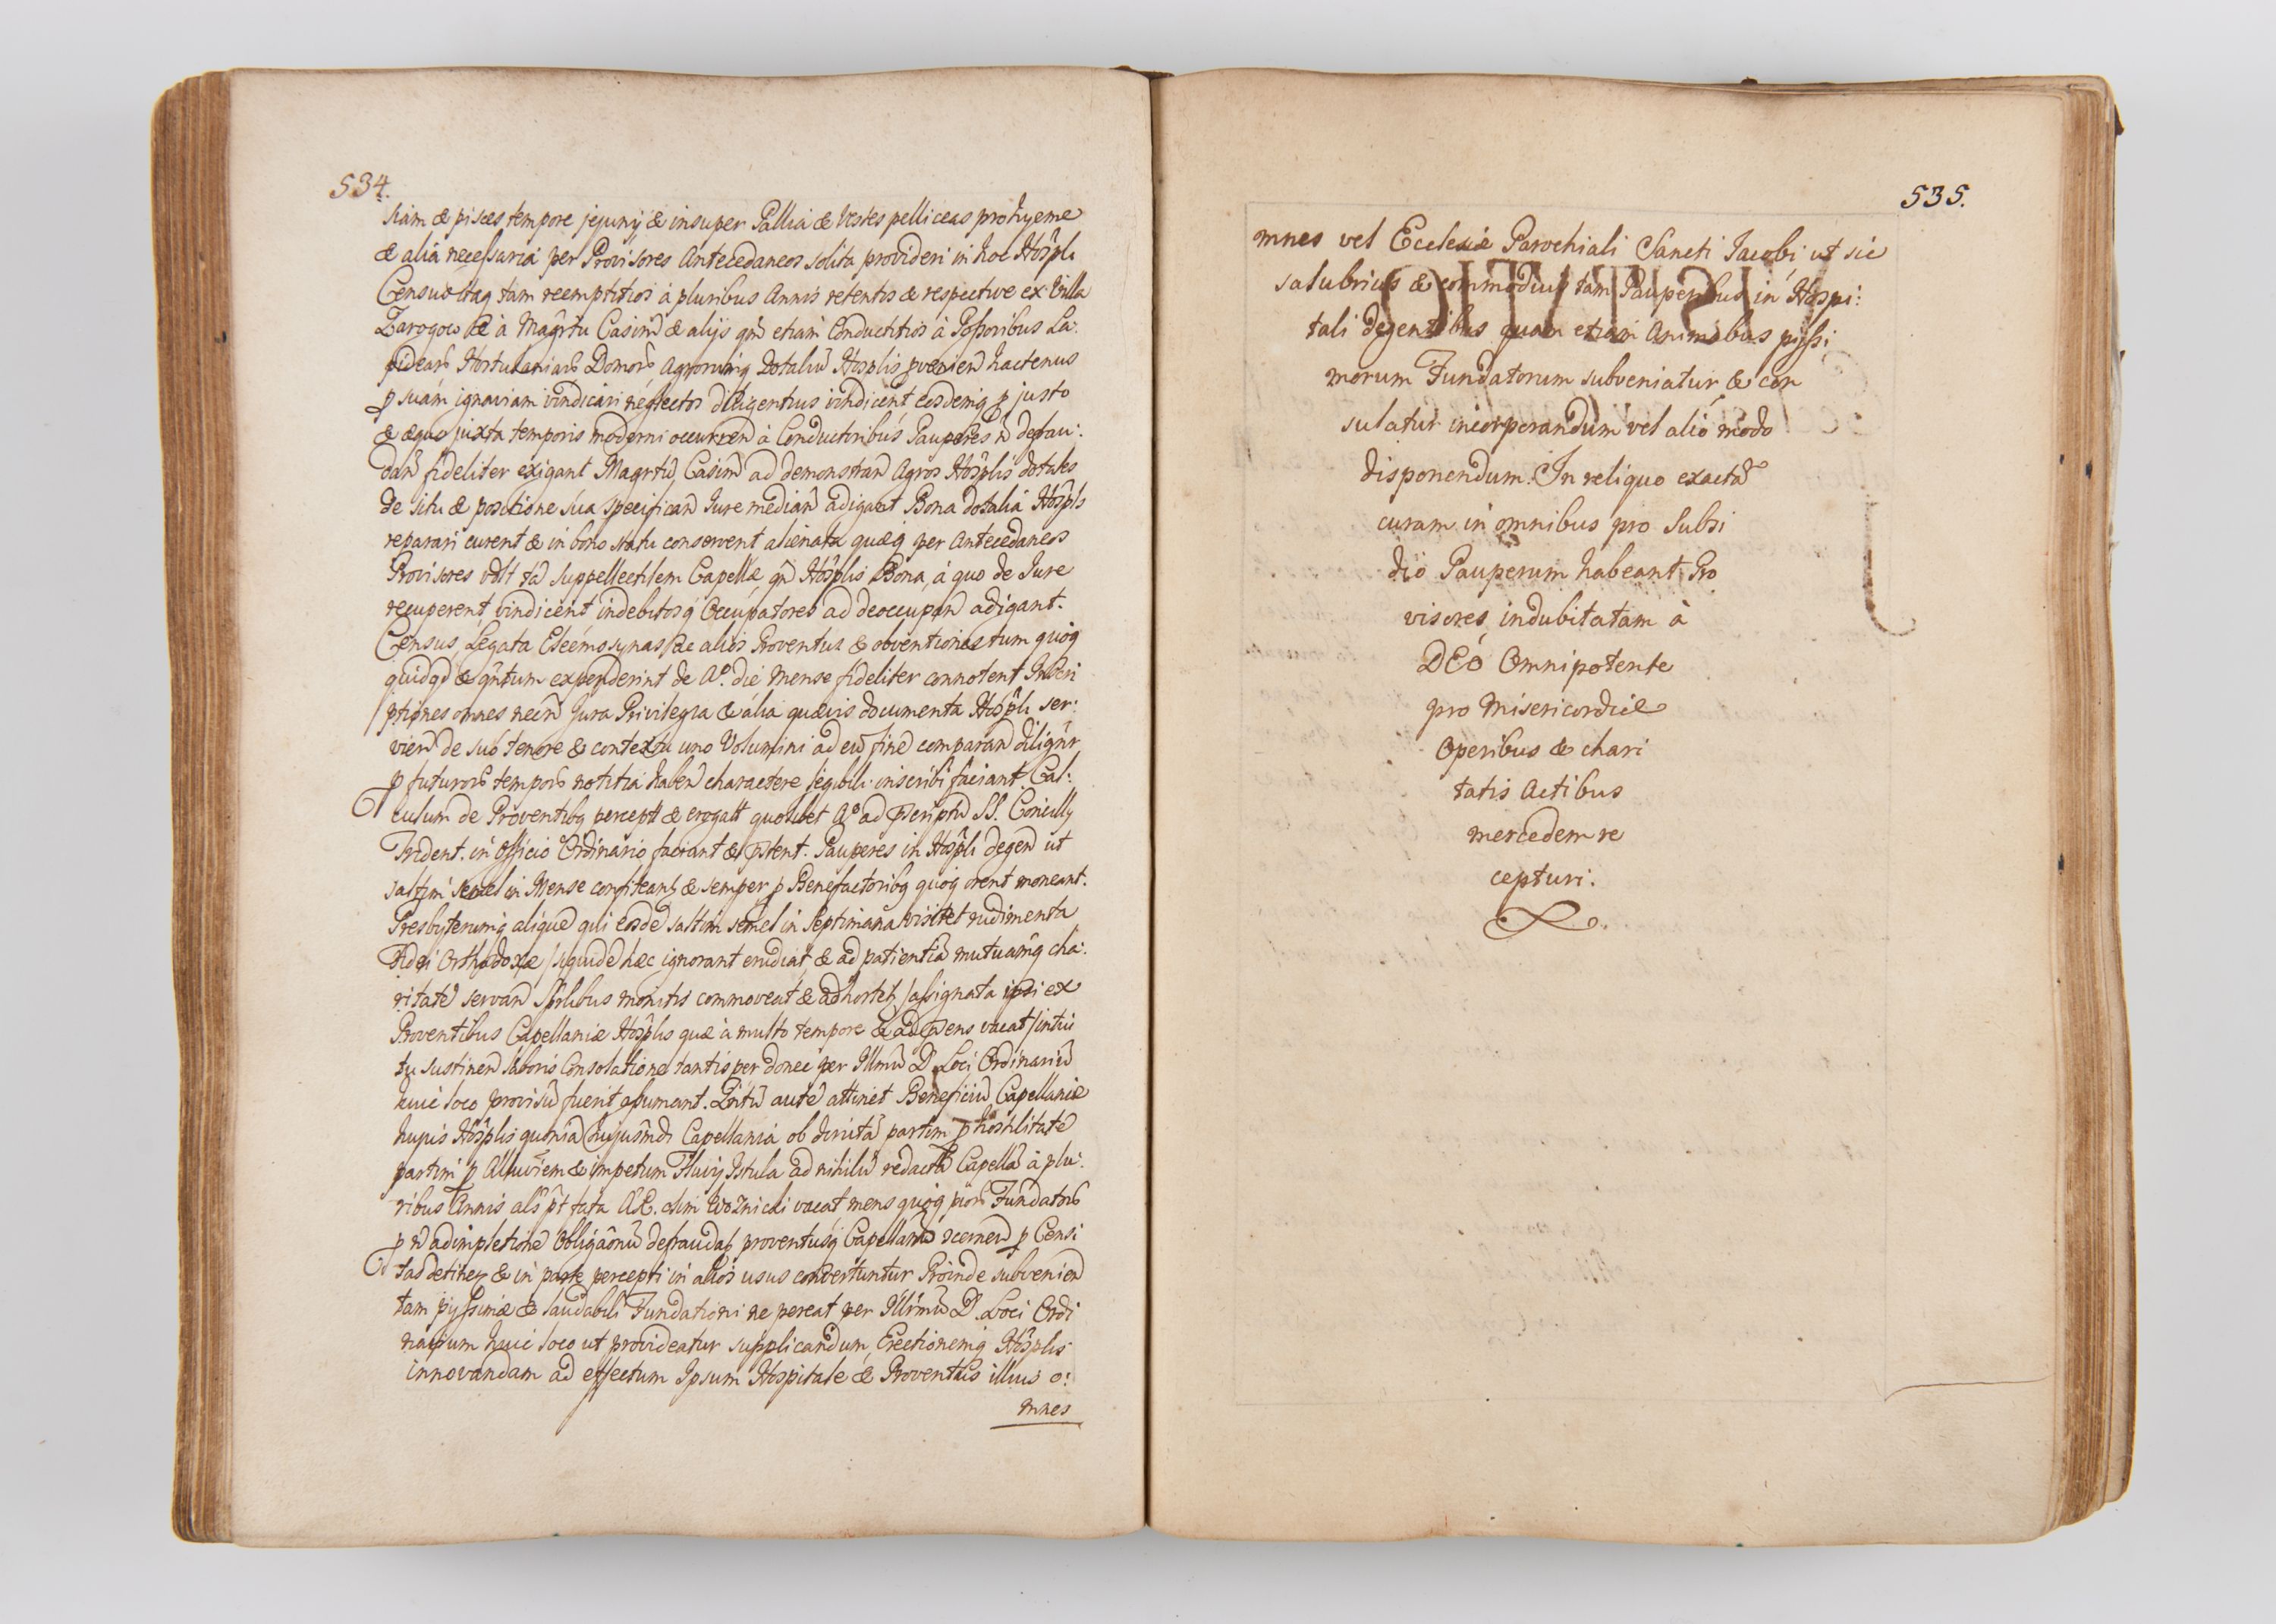 534.
siam & pisces tempore jejunij & insuper Pallia & Vestes pelliceas pro hyeme
& alia necessaria per Provisores Antecedaneos solita provideri in hoc Hosplı
Census itaq tam reemptitios a pluribus Annis retentis & respective ex Villa
Zarogow & à Magrtu Casim & alijs qm etiam Conductitios à Possoribus La:
pidear Hortulaniar Domor Agrorumq Dotaliu Hosplis provenien hactenus
p suam ignaviam vindicari neglectos diligentius vindicent eosdemq p justo
& æquo juxta temporis moderni occurren à Conductoribus Pauperes n defrau:
dan fideliter exigant Magrtu Casim ad demonstran Agros Hosplis dotales
de situ & positione sua specifican Jure median adigant Bona dotalia Hosplis
reparari curent & in bono statu conservent alienata quæq per Antecedaneos
Provisores tam suppellectilem Capellæ qm Hosplis Bona, á quo de Jure
recuperent vindicent indebitosq Occupatores ad deoccupan adigant.
Census, Legata Eleemosynas, ac alios Proventus & obventiones tum quoq
quidqd & qntum expenderint de Ao. die Mense fideliter connotent. Inscri
ptiones omnes necn Jura Privilegia & alia quævis documenta Hospli ser:
vien de suo tenore & contextu uno Volumini ad eu fine comparan diligntr
p futuror tempor notitia haben charactere legibili inscribi faciant. Cal:
culum de Proventibq percept & erogatt quolibet Ao ad pscriptu SS. Concilly
Trident. in Officio Ordinario faciant & pstent. Pauperes in Hospli degen ut
saltim semel in Mense confiteant & semper p Benefactoribq quoq orent moneant.
Presbyterumq alique qui eosde saltim semel in Septimana visitet rudimenta
Fidei Orthodoxæ siquide hæc ignorant erudiat & ad patientia mutuamq cha:
ritate servan monitis commoveat & adhortet, assignata ipsi ex
Proventibus Capellaniæ Hosplis quæ à multo tempore & ad psens vacat intui
tu sustinen laboris Consolatione tantisper donec per Illmu D. Loci Ordinariu
huic loco provisu fuerit assumant. Qntu aute attinet Beneficiu Capellaniæ
hujus Hosplis quonia hujusmdi Capellania ob diruta partim p hostilitate
partim p Alluviem & impetum Fluvij Istula ad nihilu redacta Capella à plu:
ribus Annis als pt fata olim Woznicki vacat mens quoq pior Fundator
p n adimpletione Obligaonu defraudat proventusq Capellano p Censi
tas detinet & in parte percepti in alios usus convertuntur Proinde subvenien
tam pijssimæ & laudabili Fundationi ne pereat per Illrmu D. Loci Ordi
narium huic loco ut provideatur supplicandum, Erectionemq Hosplis
innovandam ad effectum Ipsum Hospitale & Proventus illius o:
mnes
535.
mnes vel Ecclesiæ Parochiali Sancti Jacobi ut sic
salubrius & commodius tam Pauperibus in Hospi:
tali degentibus quam etiam Animabus pijssi
morum Fundatorum subveniatur & con
sulatur incorporandum vel alio modo
disponendum. In reliquo exacta
curam in omnibus pro Subsi
dio Pauperum habeant Pro
visores, indubitatam à
DEO Omnipotente
pro Misericordiæ
Operibus & chari
tatis Actibus
mercedem re
cepturi.